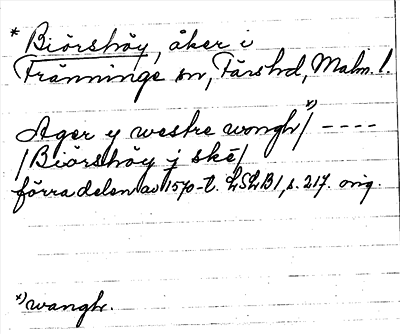 * Biörshöy, åker i
Fränninge sn, Färs hd, Malm. l.
Ager y westre wongh/ x) ----
/Biörshöy j skē/
förra delen av 1570-t. LSLB1, s. 217. orig.
x) wangh.